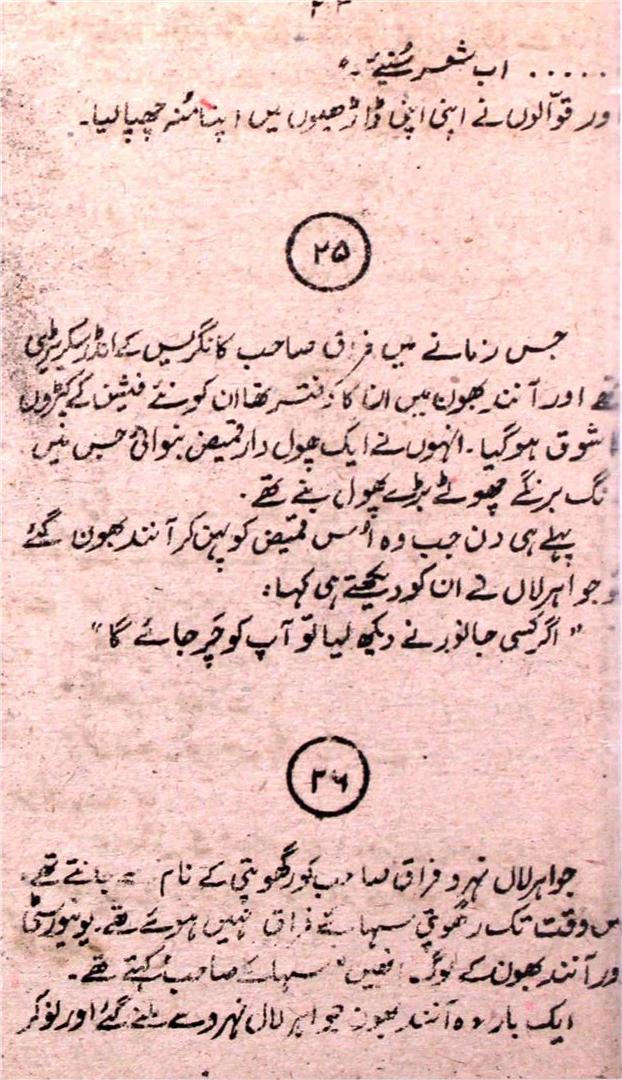 ۲۴
..... اب شعر سُنیئے۔"
اور قوّالوں نے اپنی اپنی ڈاڑھیوں میں اپنا مُنہ چھپا لیا۔
۲۵
جس زمانے میں فراق صاحب کانگریس کے انڈر سکریٹری
تھے اور آنند بھون میں ان کا دفتر تھا ان کو نئے فیشن کے کپڑوں
شوق ہو گیا۔ انہوں نے ایک پھول دار قمیض بنوائی جس میں
رنگ برنگے چھوٹے بڑے پھول بنے تھے۔
پہلے ہی دن جب وہ اُس قمیض کو پہن کر آنند بھون گئے
تو جواہر لال نے ان کو دیکھتے ہی کہا:
"اگر کسی جانور نے دیکھ لیا تو آپ کو چَر جائے گا"
۲۶
جواہر لال نہرو فراق صاحب کو رگھوپتی کے نام سے جانتے تھے
اس وقت تک رگھوپتی سہائے فراق نہیں ہوئے تھے۔ یونیورسٹی
اور آنند بھون کے لوگ انھیں "سہائے صاحب" کہتے تھے۔
ایک بار وہ آنند بھون جواہر لال نہرو سے ملنے گئے اور نوکر